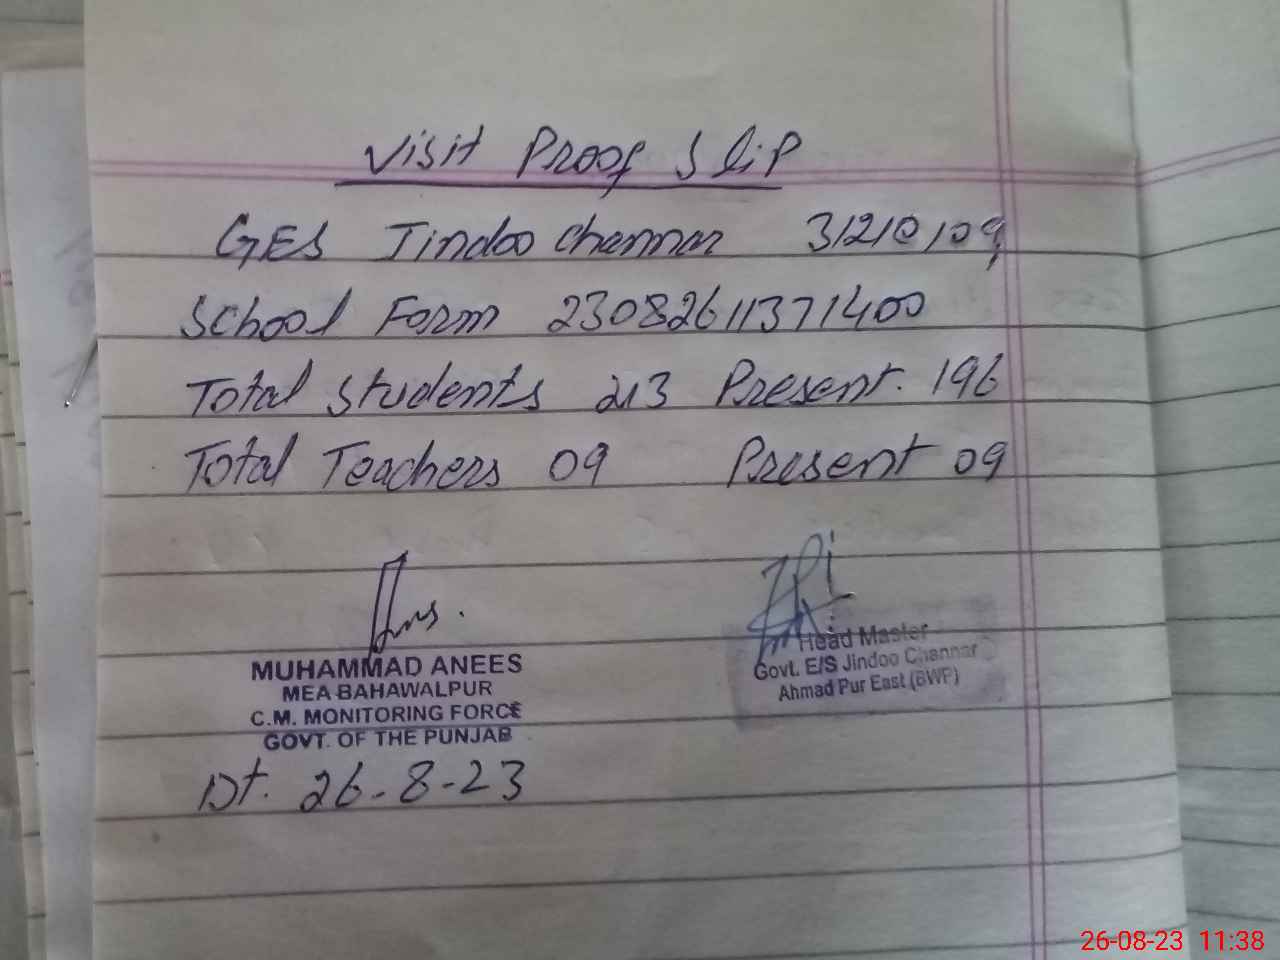 Visit Proof Slip
GES Jindoo Channar 31210109
School Form 23082611371400
Total Students 213 Present. 196
Total Teachers 09 Present 09
MUHAMMAD ANEES
MEA BAHAWALPUR
C.M. MONITORING FORCE
GOVT. OF THE PUNJAB
Dt. 26-8-23
Head Master
Govt. E/S Jindoo Channar
Ahmad Pur East (BWP)
26-08-23 11:38